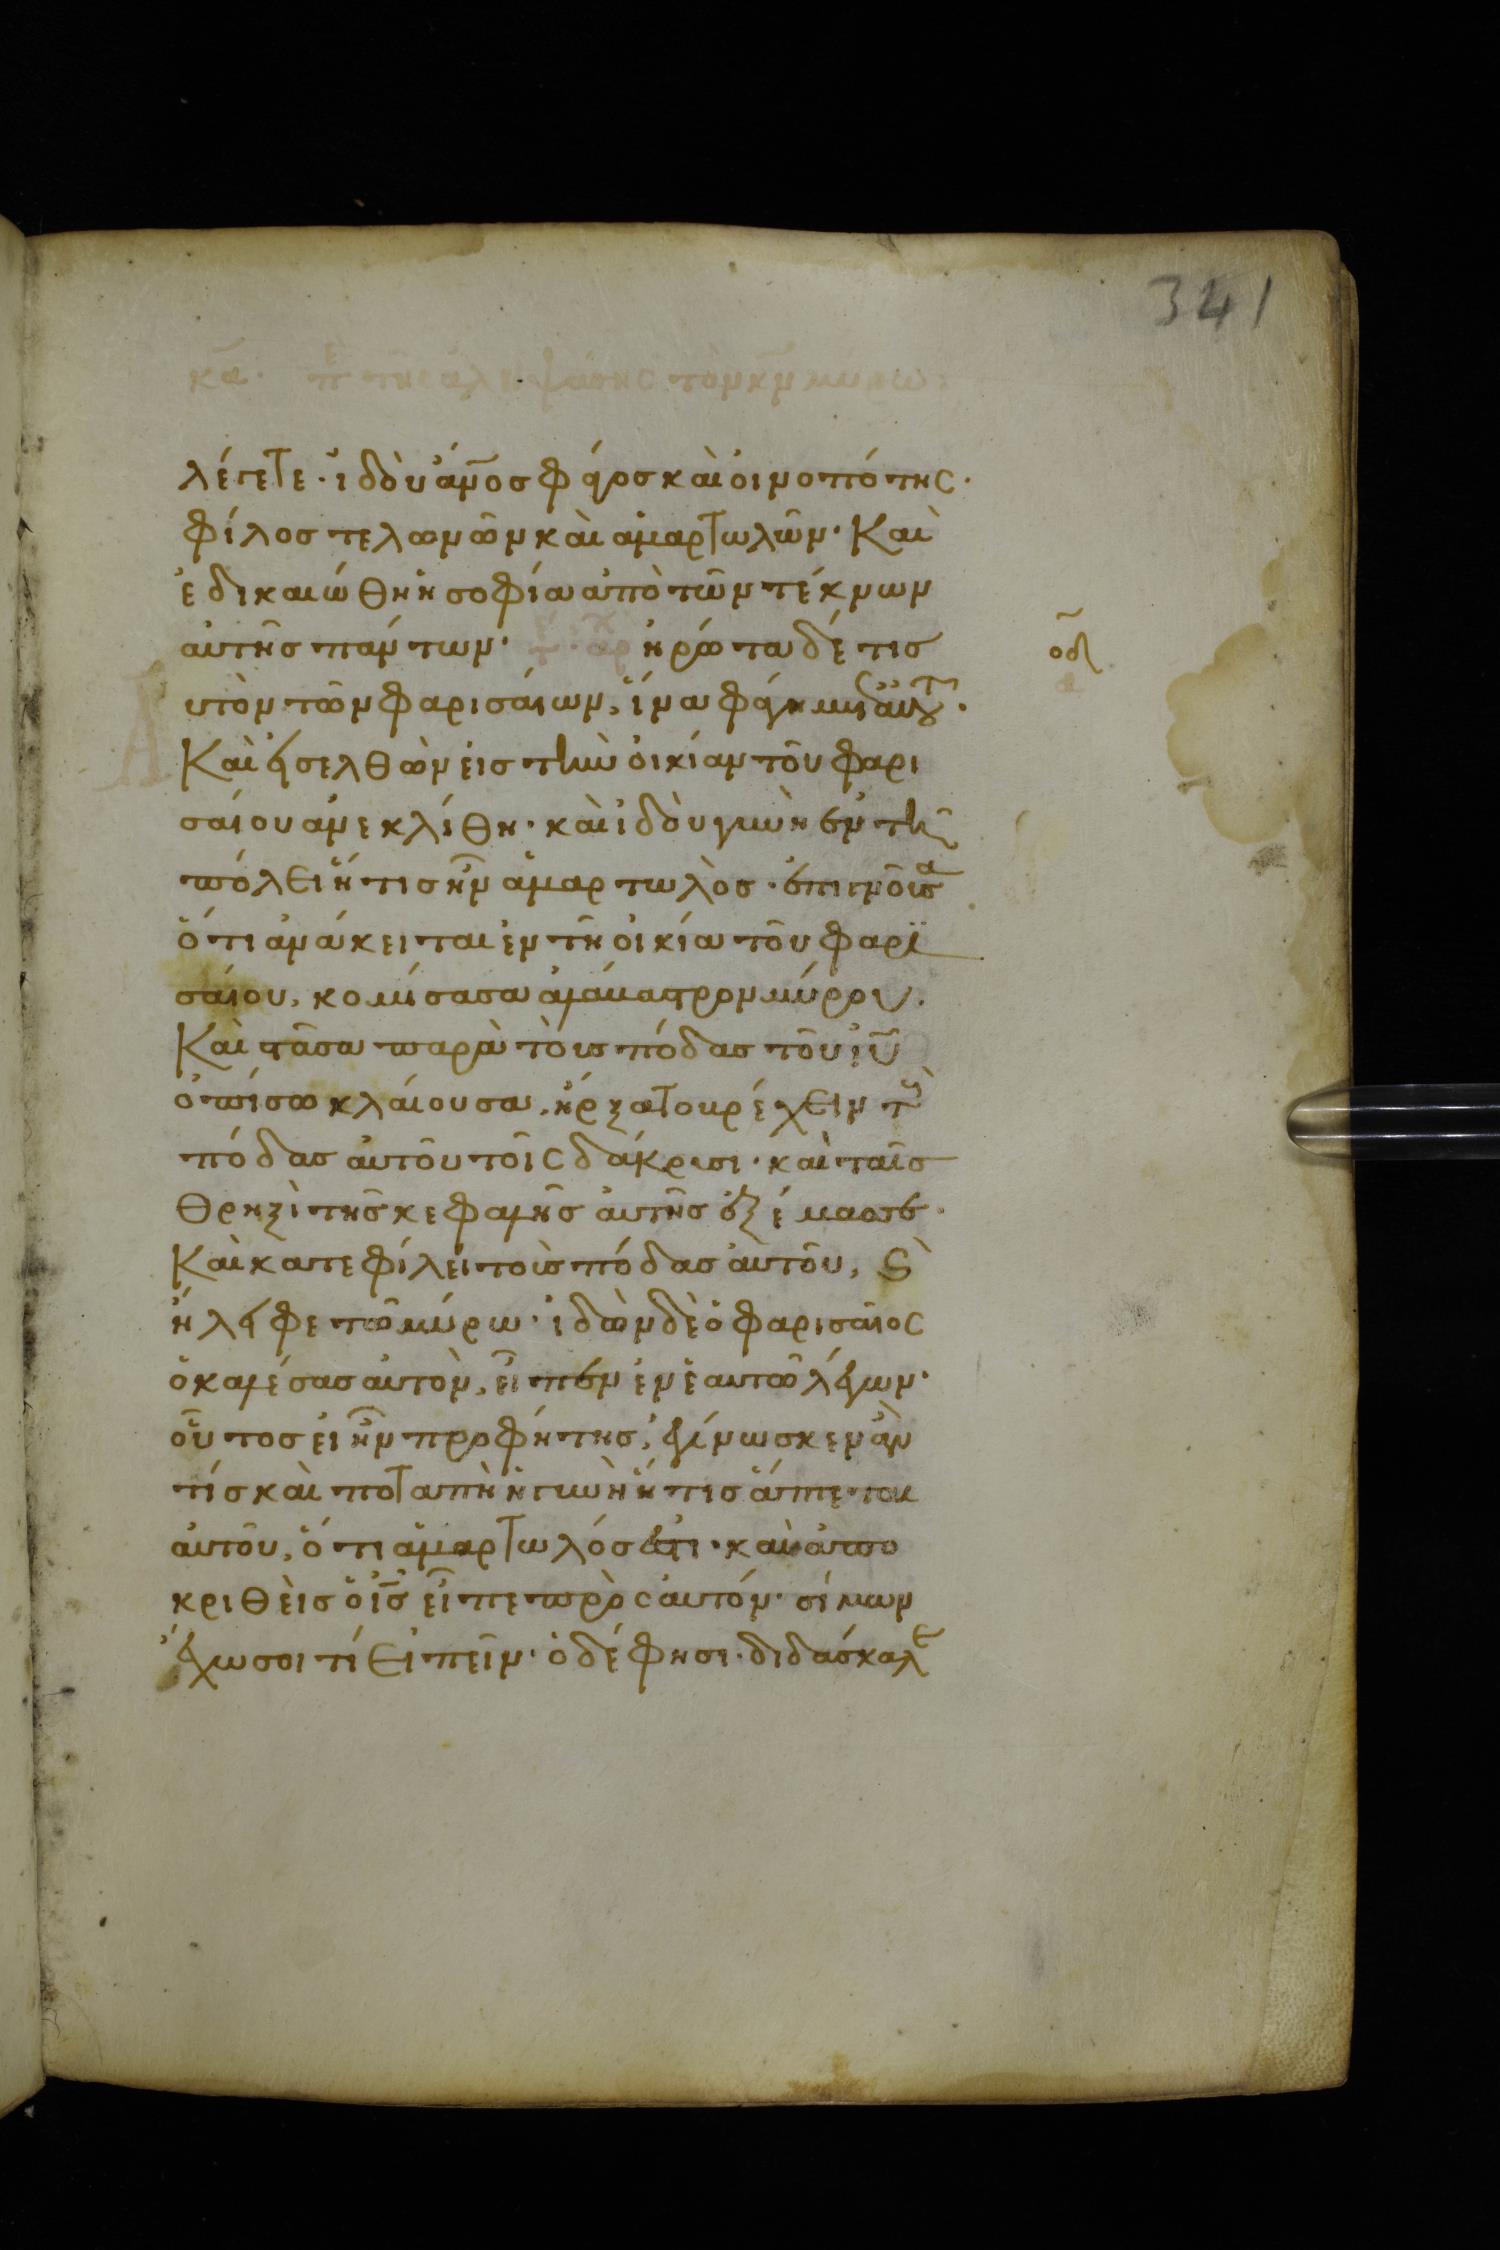 341
κα· πε της αλειψάσης τὸν κν μύρω:
λέγετε· ἰδοὺ ἄνος φάγος καὶ οἰνοπότης·
φίλος τελωνῶν καὶ ἁμαρτωλῶν· Καὶ
ἐδικαιώθη ἡ σοφία ἀπὸ τῶν τέκνων
αὐτῆς πάντων· ἠρώτα δέ τις
αὐτὸν τῶν φαρισαίων, ἵνα φάγη μετ αὐτοῦ·
Καὶ εἰσελθὼν εἰς τὴν οἰκίαν τοῦ φαρι
σαίου ἀνεκλίθη· καὶ ἰδοὺ γυνὴ ἐν τῆ
πόλει ἥτις ἦν ἁμαρτωλὸς· ἐπιγνοῦσα
ὅτι ἀνάκειται ἐν τῆ οἰκία τοῦ φαρϊ
σαίου, κομίσασα ἀλάβαστρον μύρου.
Καὶ στᾶσα παρὰ τοὺς πόδας τοῦ ἰῦ
ὀπίσω κλαίουσα, ἤρξατο βρέχειν τοὺς
πόδας αὐτοῦ τοῖς δάκρυσι· καὶ ταῖς
θρηξὶ τῆς κεφαλῆς αὐτῆς ἐξέμασσε·
Καὶ κατεφίλει τοὺς πόδας αὐτοῦ, ϗ
ἤλειφε τῶ μύρω· ἰδὼν δὲ ὁ φαρισαῖος
ὁ καλέσας αὐτὸν, εἶπεν ἐν ἑαυτῶ λέγων·
οὗτος εἰ ἦν προφήτης, ἐγίνωσκεν ἂν
τίς καὶ ποταπὴ ἡ γυνὴ ἥτις ἅπτεται
αὐτοῦ, ὅτι ἁμαρτωλός ἐστι· καὶ ἀπο
κριθεὶς ὁ ἰς εἶπε πρὸς αὐτόν· σίμων
ἔχω σοι τί εἰπεῖν· ὁ δέ φησι· διδάσκαλε
οδ
α